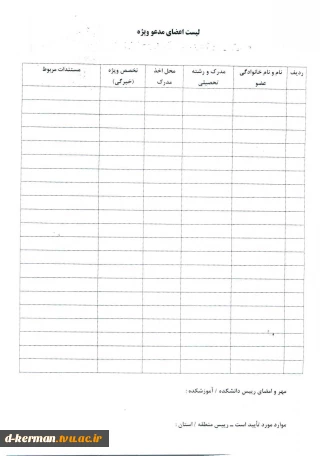 لیست اعضای مدعو ویژه
ردیف
نام و نام خانوادگی عضو
مدرک و رشته تحصیلی
محل اخذ مدرک
تخصص ویژه (خبرگی)
مستندات مربوط
مهر و امضای رییس دانشکده / آموزشکده :
موارد مورد تأیید است ــ رییس منطقه / استان :
d-kerman.tvu.ac.ir